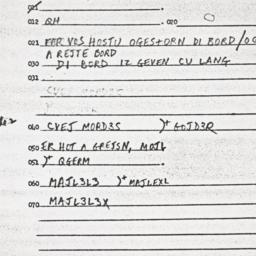 012 QH 020
021 FER VOS HOSTU OGES+ORN DI BORD/OG
A REJTE BORD
030 DI BORD IZ GEVEN CU LANG
031
040 CVEJ MORD3S )+ GOJD3R
050 ER HOT A GREJSN, MOJL
051 )+ QGERM
060 MAJL3L3 )+ MAJLEXL
070 MAJL3L3X